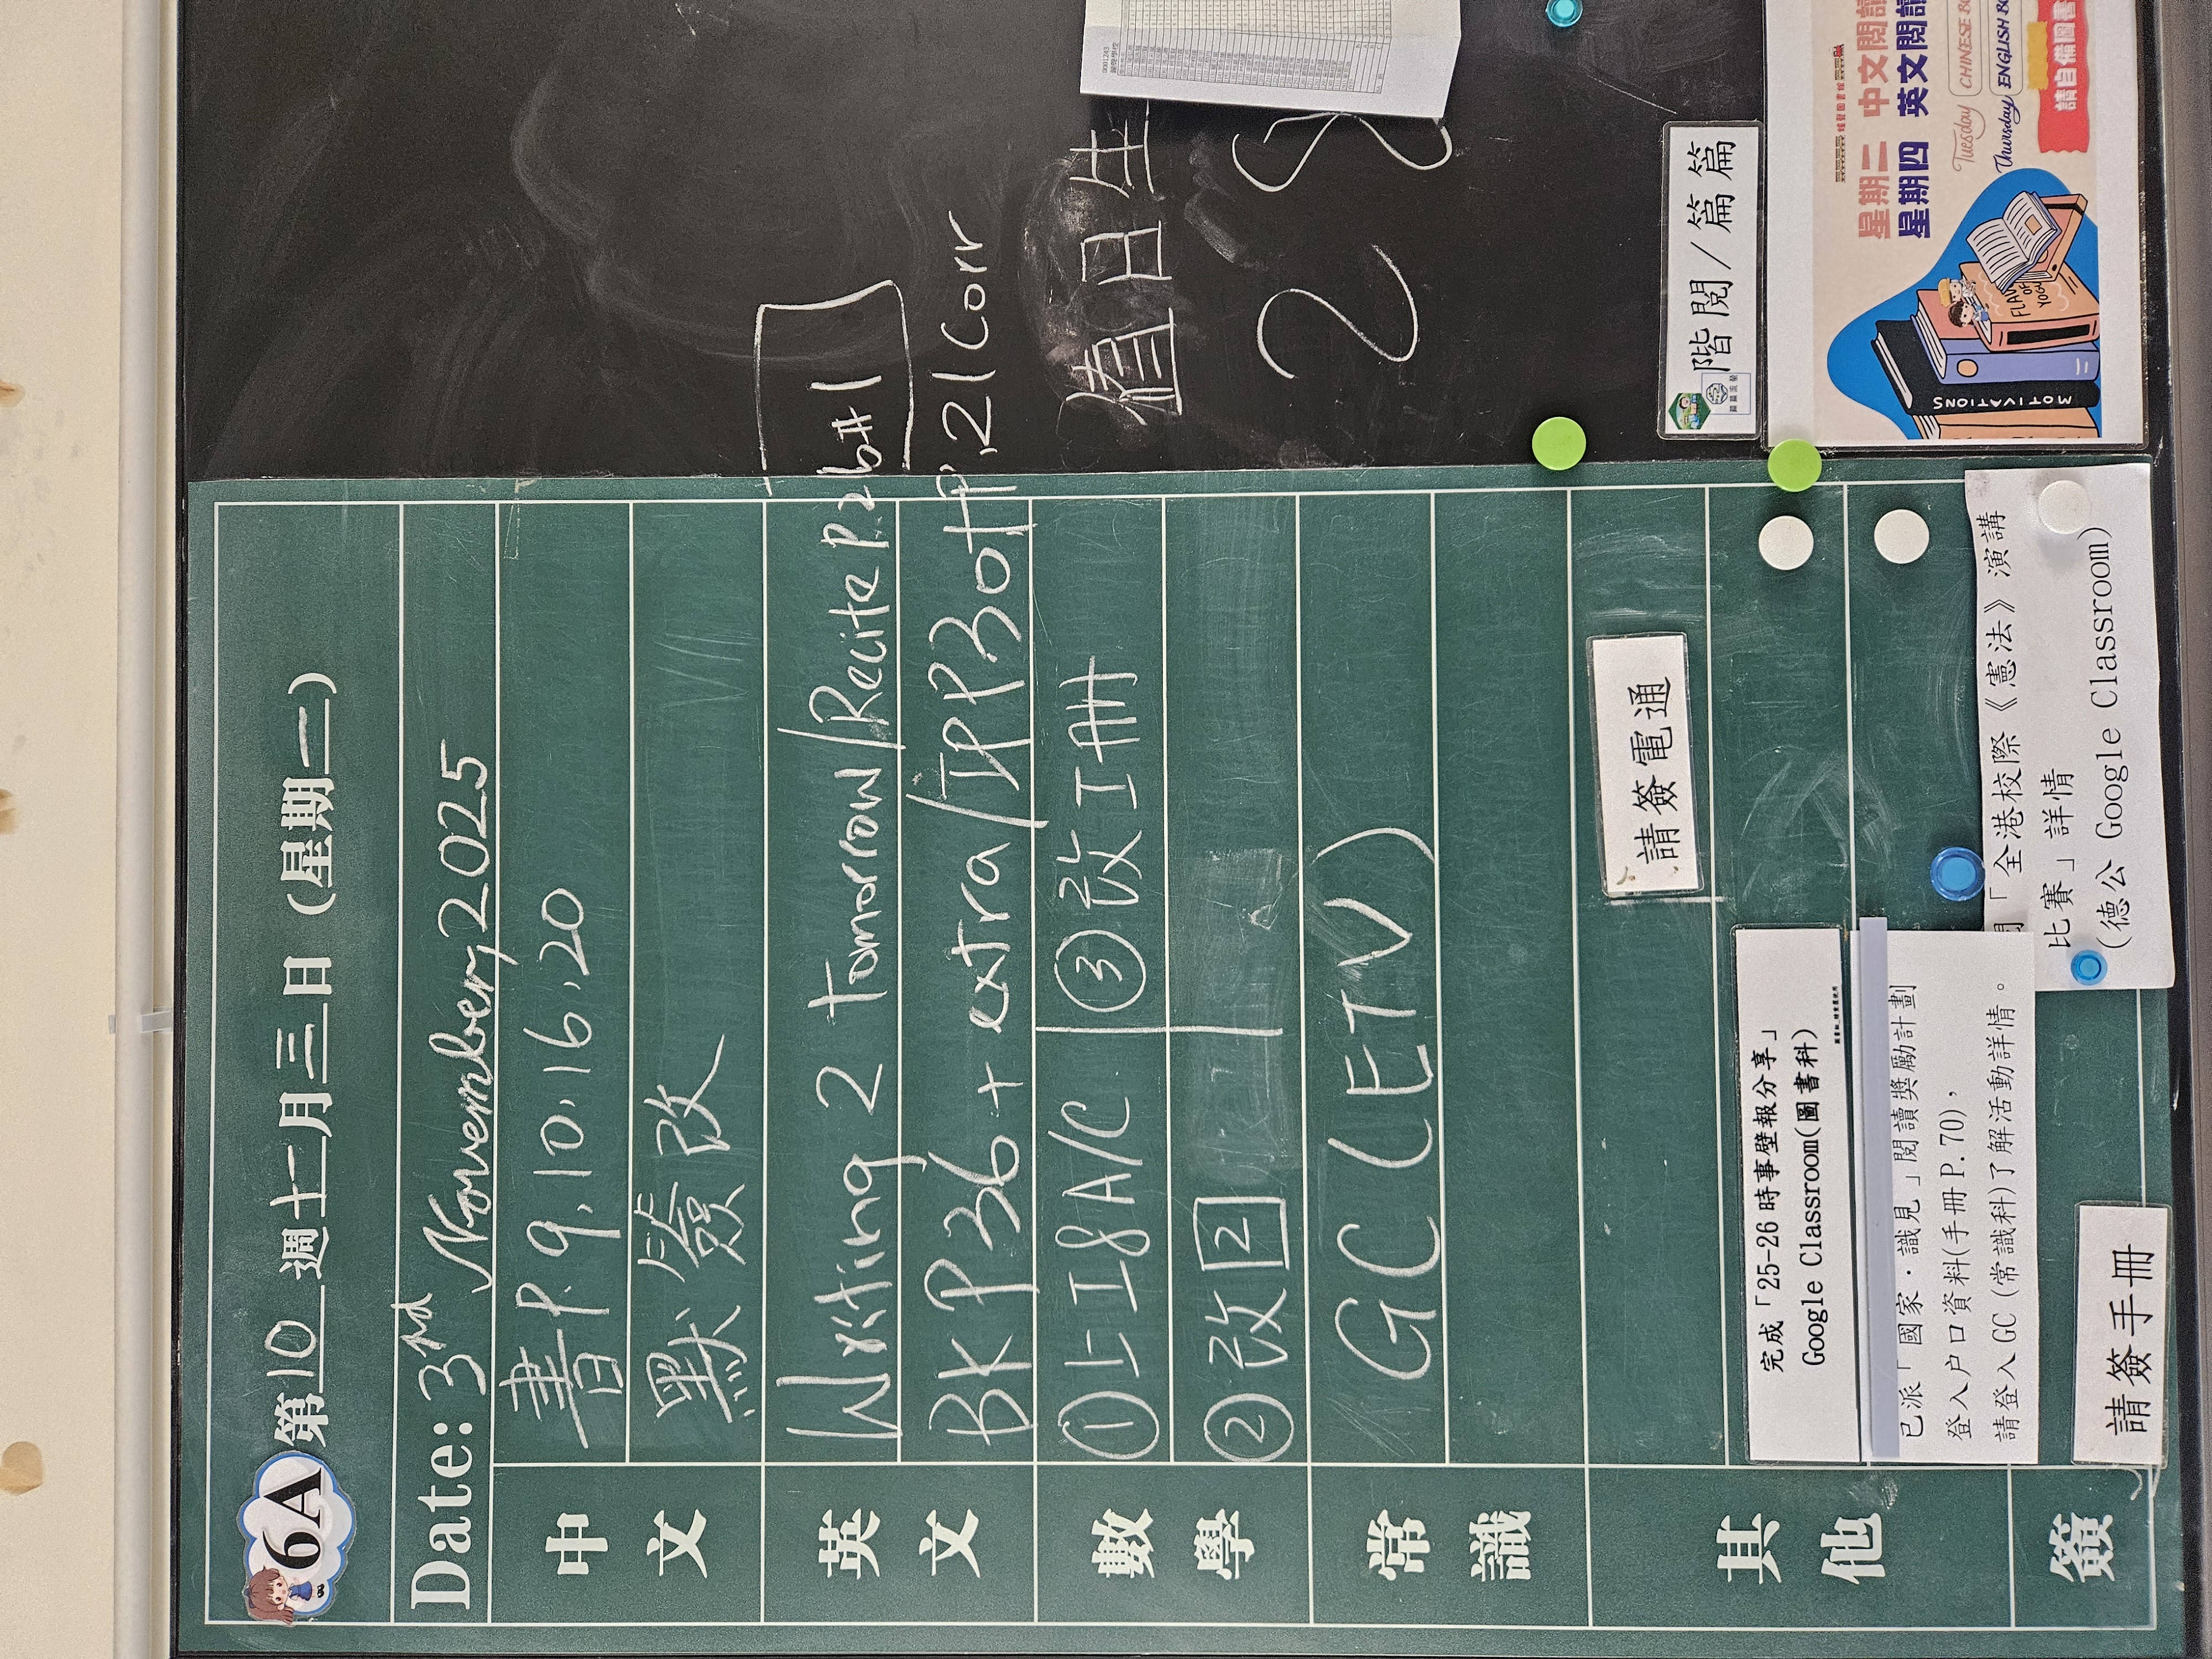 6A 第10週十一月三日(星期一)
Date: 3rd November, 2025
中文
書P.9,10,16,20
默簽改
英文
Writing 2 tomorrow/Recite P.26#1
BK P36 + extra/IPP30+P.21 Corr
數學
①上I8A/C ③改I冊
②改2
常識
GC(ETV)
其他
請簽電通
完成「25-26時事壁報分享」
Google Classroom(圖書科)
已派「國家·識見」閱讀獎勵計劃
登入户口資料(手冊P.70),
請登入GC(常識科)了解活動詳情。
「全港校際《憲法》演講
比賽」詳情
(德公 Google Classroom)
簽
請簽手冊
值日生
2 8
階閱/篇篇
星期二 中文閱讀
Tuesday CHINESE
星期四 英文閱讀
Thursday ENGLISH
請自備圖書
MOTIVATIONS